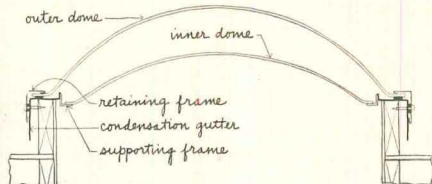 outer dome
inner dome
retaining frame
condensation gutter
supporting frame